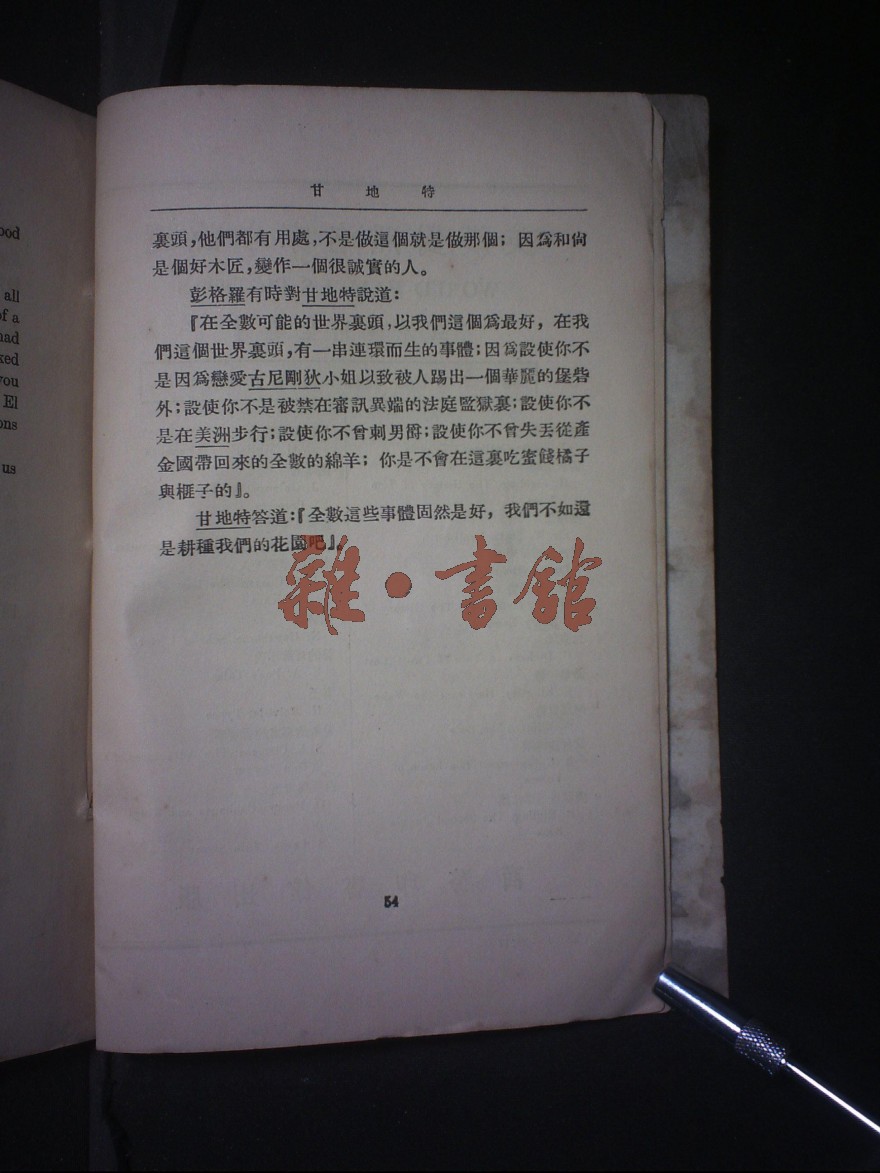 ood
all
of a
had
ked
you
El
ons
us
甘 地 特
裏頭,他們都有用處,不是做這個就是做那個; 因爲和尙
是個好木匠,變作一個很誠實的人。
彭格羅有時對甘地特說道:
『在全數可能的世界裏頭,以我們這個爲最好, 在我
們這個世界裏頭,有一串連環而生的事體;因爲設使你不
是因爲戀愛古尼剛狄小姐以致被人踢出一個華麗的堡砦
外;設使你不是被禁在審訊異端的法庭監獄裏;設使你不
是在美洲步行;設使你不曾刺男爵;設使你不曾失丟從產
金國帶回來的全數的綿羊; 你是不會在這裏吃蜜餞橘子
與榧子的』。
甘地特答道:『全數這些事體固然是好, 我們不如還
是耕種我們的花園吧』。
雜·書館
54